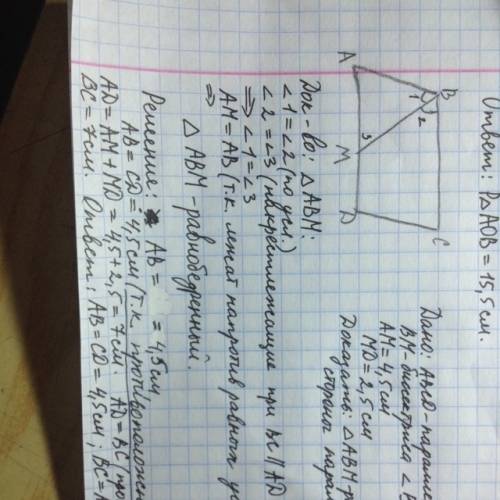 Ответ: P△AOB = 15,5 см.
A
B
C
D
M
1
2
3
Дано: ABCD-паралле
BM-биссектриса ∠
AM = 4,5 см
MD = 2,5 см
Доказать: △ABM-
стороны парал
Док-во: △ABM:
∠1 = ∠2 (по усл.)
∠2 = ∠3 (накрестлежащие при BC || AD
⇒ ∠1 = ∠3
AM = AB (т.к. лежат напротив равных уг
⇒
△ ABM-равнобедренный.
Решение: AB = = 4,5 см
AB = CD = 4,5 см (т.к. противоположн
AD = AM + MD = 4,5 + 2,5 = 7 см. AD = BC (про
BC = 7 см. Ответ: AB = CD = 4,5 см; BC = A